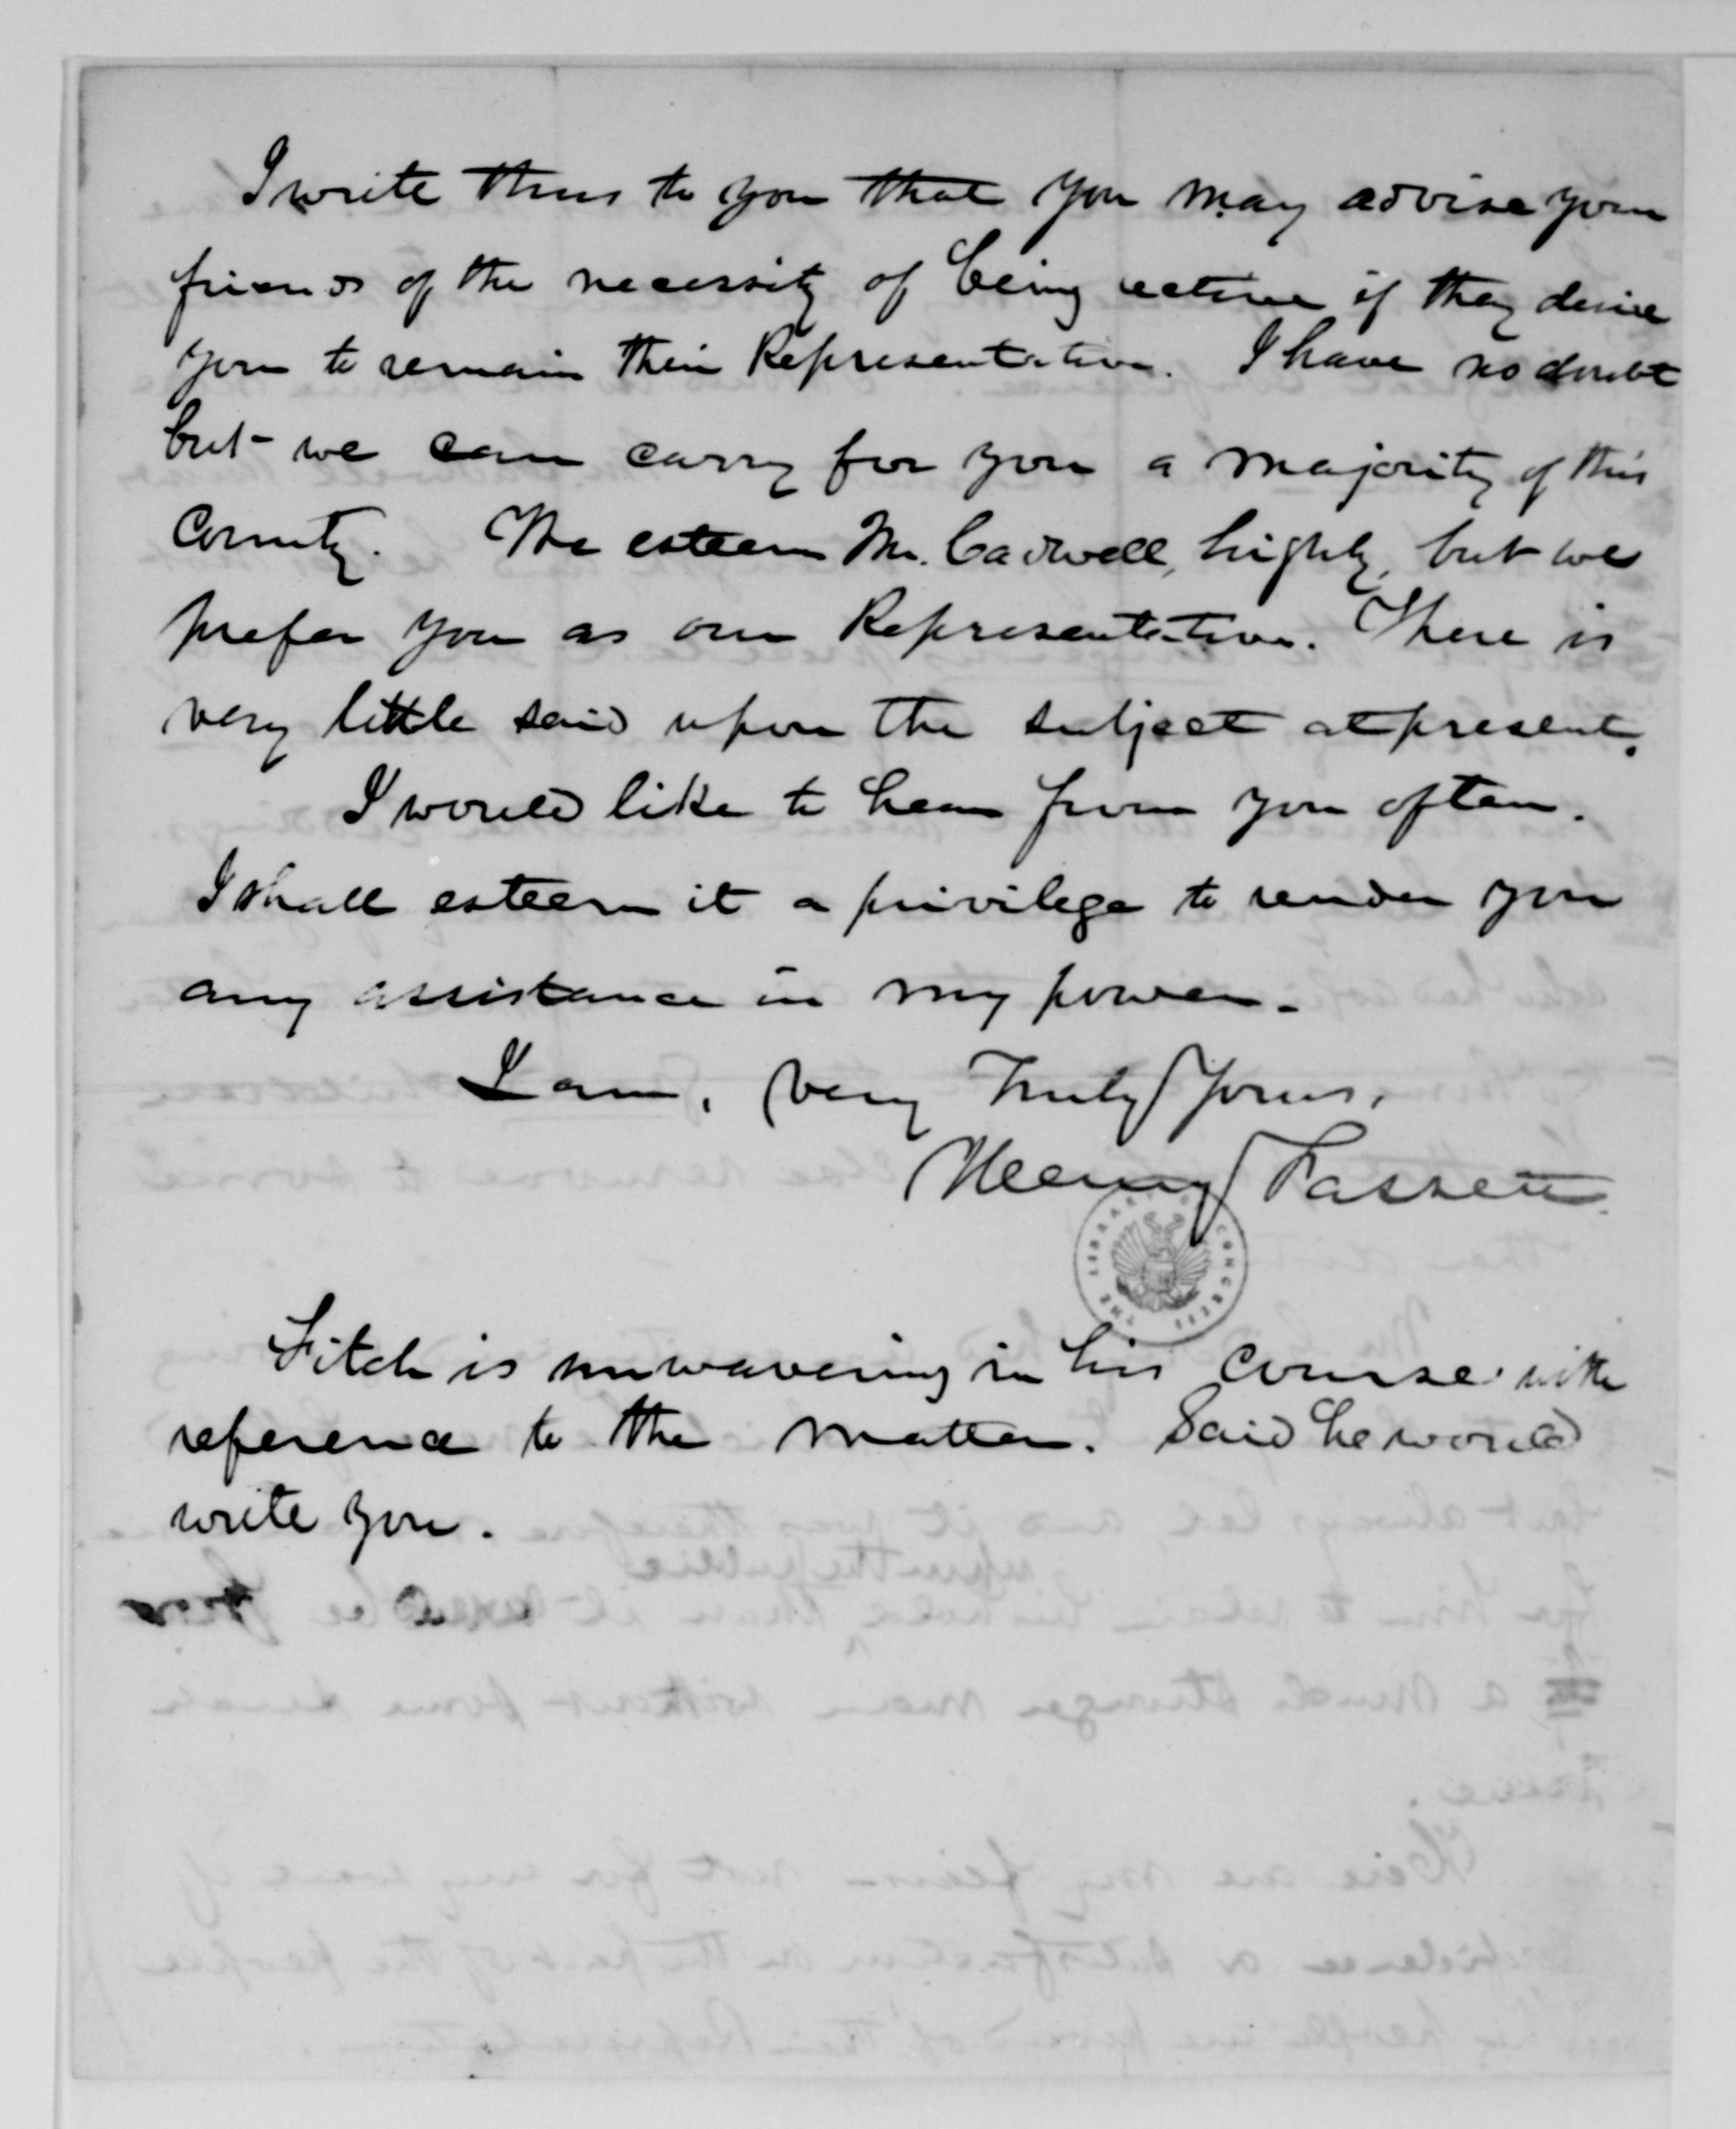 I write thus to you that you may advise your
friends of the necessity of being active if they desire
you to remain their Representative. I have no doubt
but we can carry for you a majority of this
County. We esteem Mr. Cadwell, highly, but we
prefer you as our Representative. There is
very little said upon the subject at present.
I would like to hear from you often.
I shall esteem it a privilege to render you
any assistance in my power.
I am, Very Truly Yours,
Henry Fassett.
THE LIBRARY OF CONGRESS
Fitch is unwavering in his course with
reference to the matter. Said he would
write you.